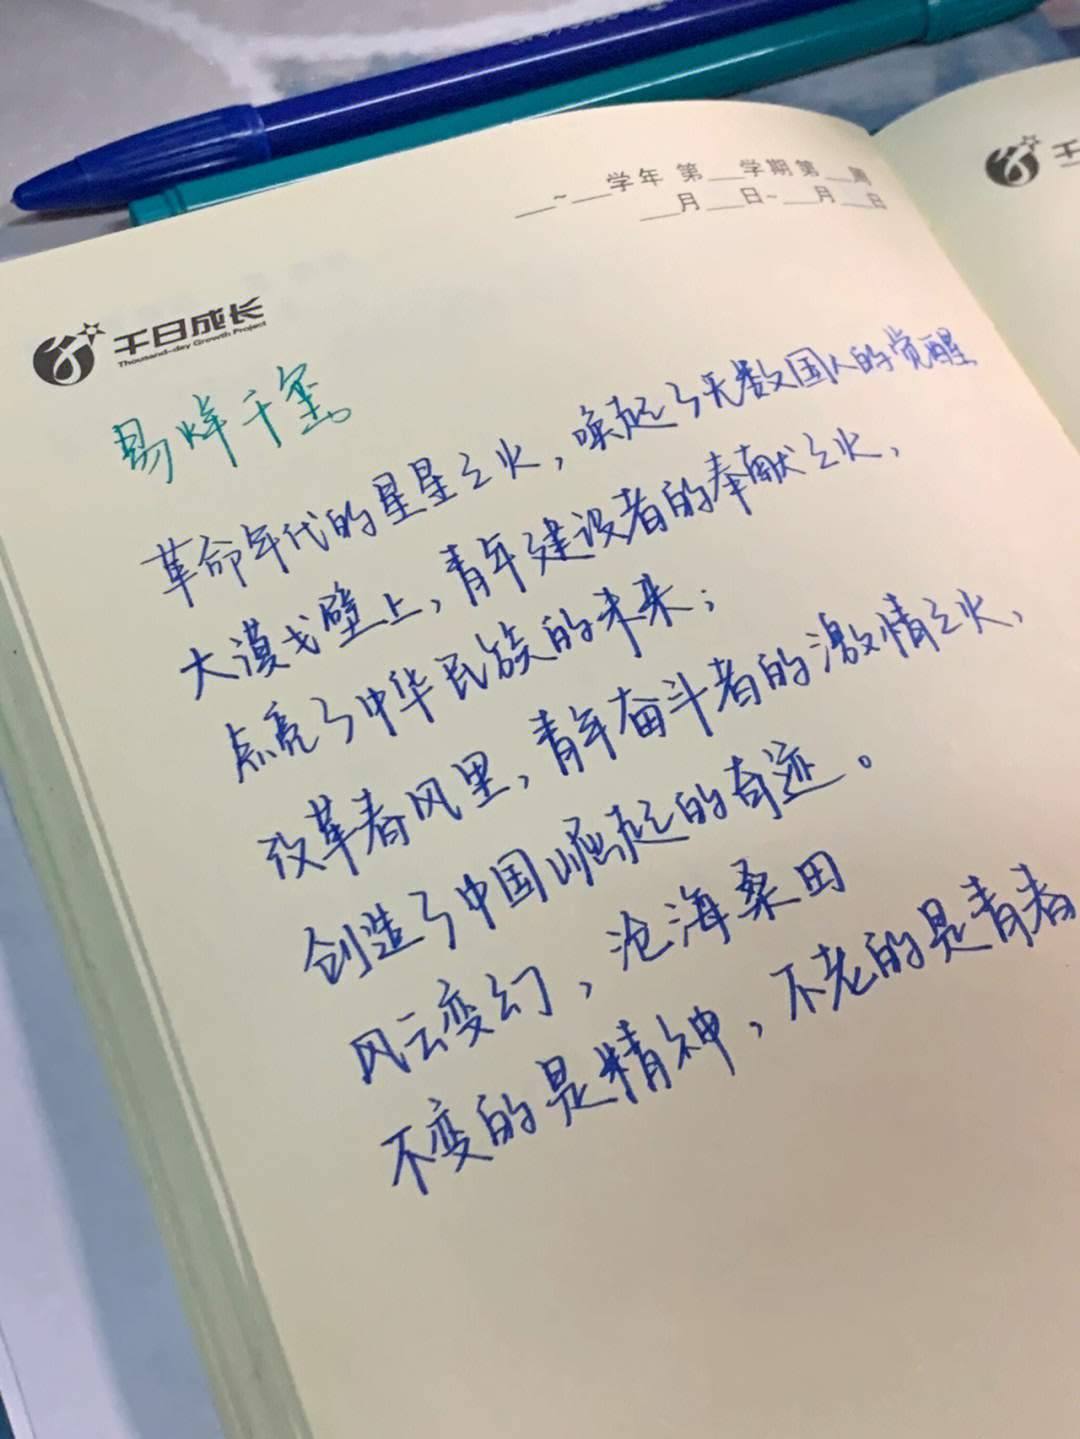 ___~___学年 第___学期第___周
___月___日~___月___日
千日成长
Thousand-day Growth Project
易烊千玺
革命年代的星星之火，唤起了无数国人的觉醒
大漠戈壁上，青年建设者的奉献之火，
点亮了中华民族的未来；
改革春风里，青年奋斗者的激情之火，
创造了中国崛起的奇迹。
风云变幻，沧海桑田
不变的是精神，不老的是青春